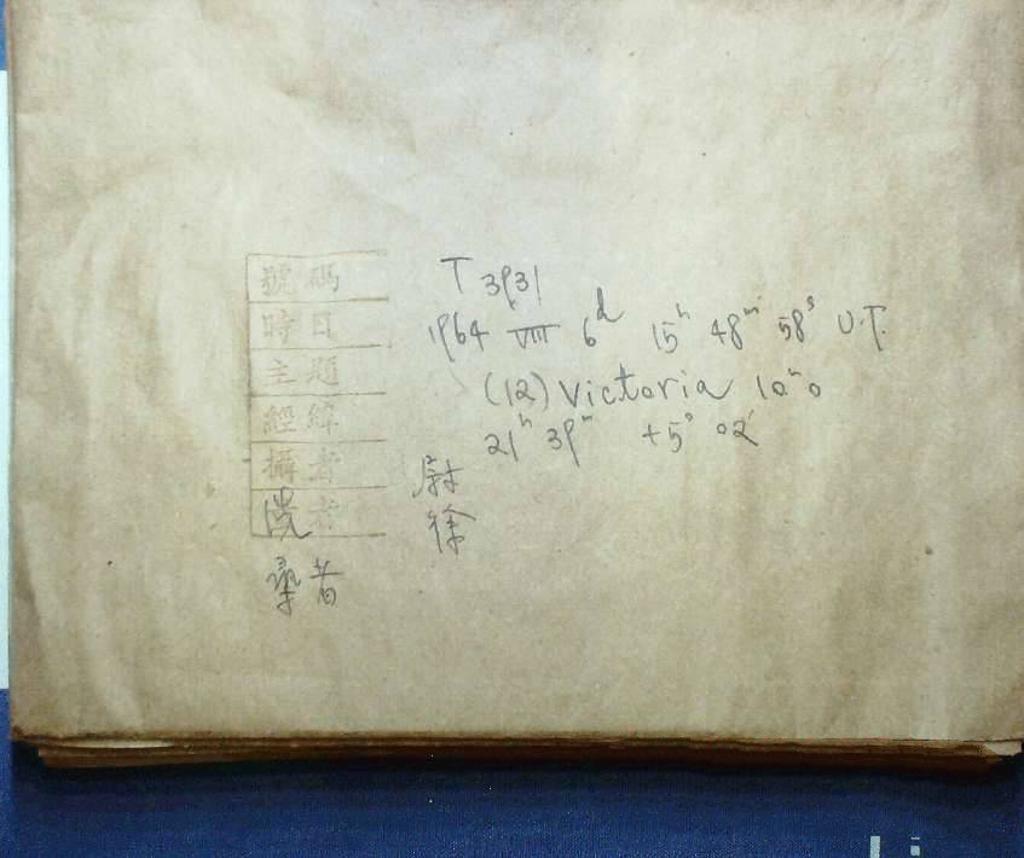 號碼 T 3931
時日 1964 VIII 6d 15h 48m 58s U.T.
主題 (12) Victoria 10m0
經緯 21h 39m +5° 02'
攝者 尉
洗者 徐
尋者